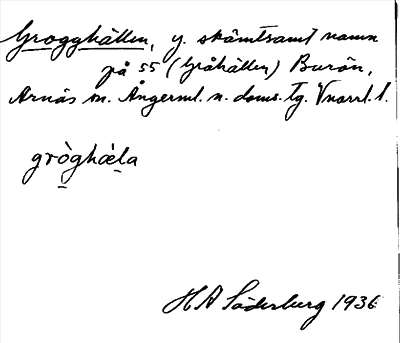 Grogghällen, y. skämtsamt namn
på 55 (Gråhällen) Burön,
Arnäs sn. Ångerml. n. doms. tg. Vnorrl. l.
gròghǽla
H A Söderberg 1936